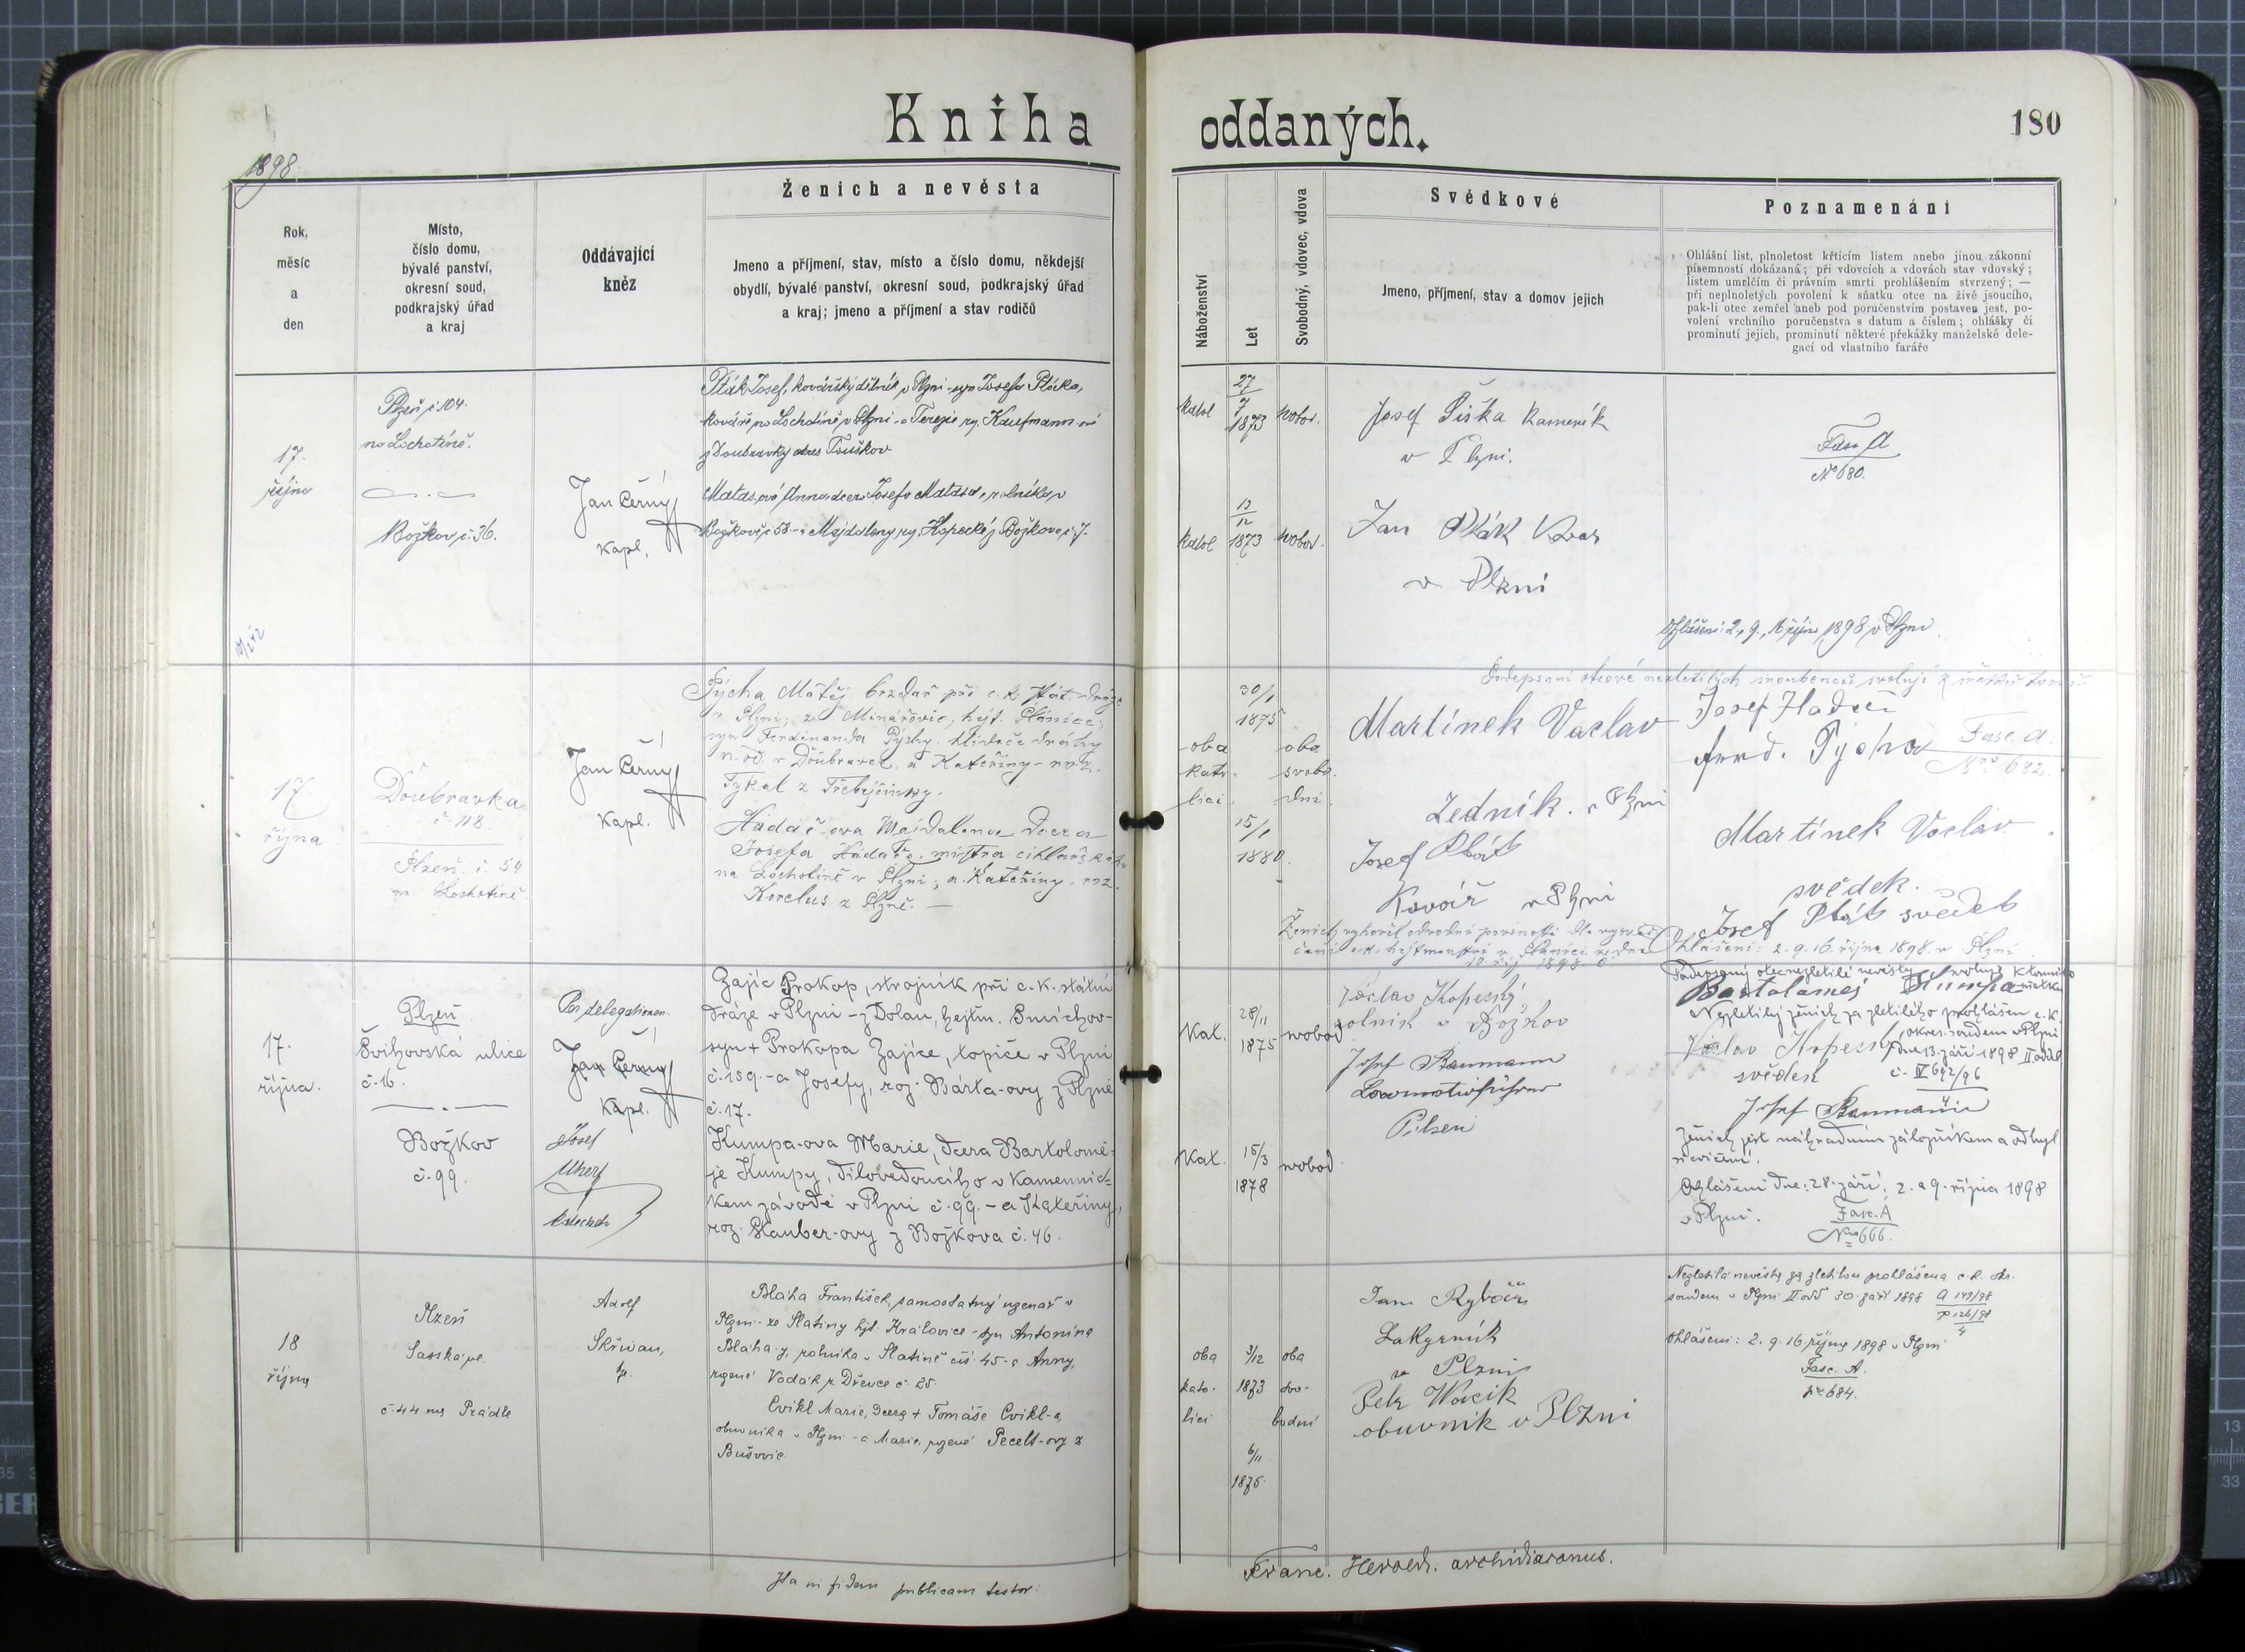 Kniha oddaných.
180
1898.
Rok,
měsíc
a
den
Místo,
číslo domu,
bývalé panství,
okresní soud,
podkrajský úřad
a kraj
Oddávající
kněz
Ženich a nevěsta
Jmeno a příjmení, stav, místo a číslo domu, někdejší
obydlí, bývalé panství, okresní soud, podkrajský úřad
a kraj; jmeno a příjmení a stav rodičů
Náboženství
Let
Svobodný, vdovec, vdova
Svědkové
Jmeno, příjmení, stav a domov jejich
Poznamenání
Ohlášní list, plnoletost křticím listem anebo jinou zákonní
písemností dokázaná; při vdovcích a vdovách stav vdovský;
listem umrlčím či právním smrti prohlášením stvrzený; —
při neplnoletých povolení k sňatku otce na živě jsoucího,
pak-li otec zemřel aneb pod poručenstvím postaven jest, po-
volení vrchního poručenstva s datum a číslem; ohlášky či
prominutí jejich, prominutí některé překážky manželské dele-
gací od vlastního faráře
17.
října
Plzeň č. 104.
na Lochotíně.
Božkov č. 36.
Jan Černý
kapl.
Pták Josef, kovářský dělník v Plzni - syn Josefa Ptáka,
kováře na Lochotíně v Plzni - a Terezie roz. Kaufmann-ové
z Doubravky okres Touškov
Matas-ová Anna dcera Josefa Matasa, rolníka v
Božkově č. 58 - a Majdaleny roz. Hopecké z Božkova č. 7.
katol
27
7
1873
svobod.
katol
13
12
1873
svobod.
Josef Šiška kameník
v Plzni.
Jan Pták
v Plzni
Fasc A
No 680.
Ohlášení: 2., 9., 16 října 1898 v Plzni
17.
října
Doubravka
č. 118.
Plzeň č. 54
na Lochotíně.
Jan Černý
kapl.
Pýcha Matěj brzdař při c. k. stát. dráze
v Plzni, z Minářovic, hejt. Plánice;
syn Ferdinanda Pýchy hlídače dráhy
n. od. v Doubravce, a Kateřiny - roz.
Tykal z Třebejčinky.
Hadáč-ova Majdalena dcera
Josefa Hadače, mistra cihlářského
na Lochotíně v Plzni; a Kateřiny roz.
z Plzně. —
oba
kato-
lici
30/1
1875
15/1
1880.
oba
svobo-
dní
Martínek Vaclav
Zedník. v Plzni
Josef Pták
Kovář v Plzni
Podepsaní otcové nezletilých snoubenců svolují k sňatku tomuto
Josef Hadač
Ferd. Pýcha
Fasc. A.
Nro 682.
Martínek Vaclav
svědek.
Josef Pták svědek
Ohlášení: 2. 9. 16. října 1898. v Plzni
17.
října.
Plzeň
Švihovská ulice
č. 16.
Božkov
č. 99.
Per delegationem
Jan Černý
kapl.
Josef
Zajíc Prokop, strojník při c. k. státní
dráze v Plzni - z Dolan, hejtm. Smíchov -
syn + Prokopa Zajíce, topiče v Plzni
č. 159. - a Josefy, roz. Bárta-ovy z Plzně
č. 17.
Kumpa-ova Marie, dcera Bartolomě-
je Kumpy, dílovedoucího v kamennic-
kém závodě v Plzni č. 99. - a Kateřiny,
roz. Hauber-ovy z Božkova č. 46.
Kat.
28/11
1875
svobod
Kat.
15/3
1878
svobod
Václav Kopeský
rolník v Božkov
Josef Baumann
Locomotivführer
Pilsen
Podepsaný otec nezletilé nevěsty svoluje k tomuto
Bartolomej Kumpa sňatku
Nezletilý ženich za zletilého prohlášen c. k.
okres. soudem v Plzni
dne 13. září 1898 II. odděl.
č. IV 692/96
Václav Kopeský
svědek
Josef Baumann
Ženich jest náhradním záložníkem a odbyl
si cvičení.
Ohlášení dne: 28. září, 2. a 9. října 1898
v Plzni.
Fasc. A
Nro 666.
18
října
Plzeň
Saská ul.
č. 44 na Prádle
Adolf
Skřivan,
kp.
Blaha František, samostatný uzenář v
Plzni - ze Slatiny hjt. Kralovice - syn Antonína
Blaha-y, rolníka v Slatině čís. 45 - a Anny,
rozené Vodák z Dřevce č. 25.
Cvikl Marie, dcera + Tomáše Cvikl-a,
obuvníka v Plzni - a Marie, rozené Pecelt-ovy z
Bušovic.
oba
kato-
lici
3/12
1873
6/11
1875.
oba
svo-
bodní
Jan Rybář
Lakyrník
v Plzni
Petr Wacik
obuvník v Plzni
Nezletilá nevěsta za zletilou prohlášena c. k. okr.
soudem v Plzni II. odd 30. září 1898
Ohlášení: 2. 9. 16. října 1898 v Plzni
Fasc. A.
No 684.
Ita in fidem publicam testor:
Franc. Herold. archidiaconus.